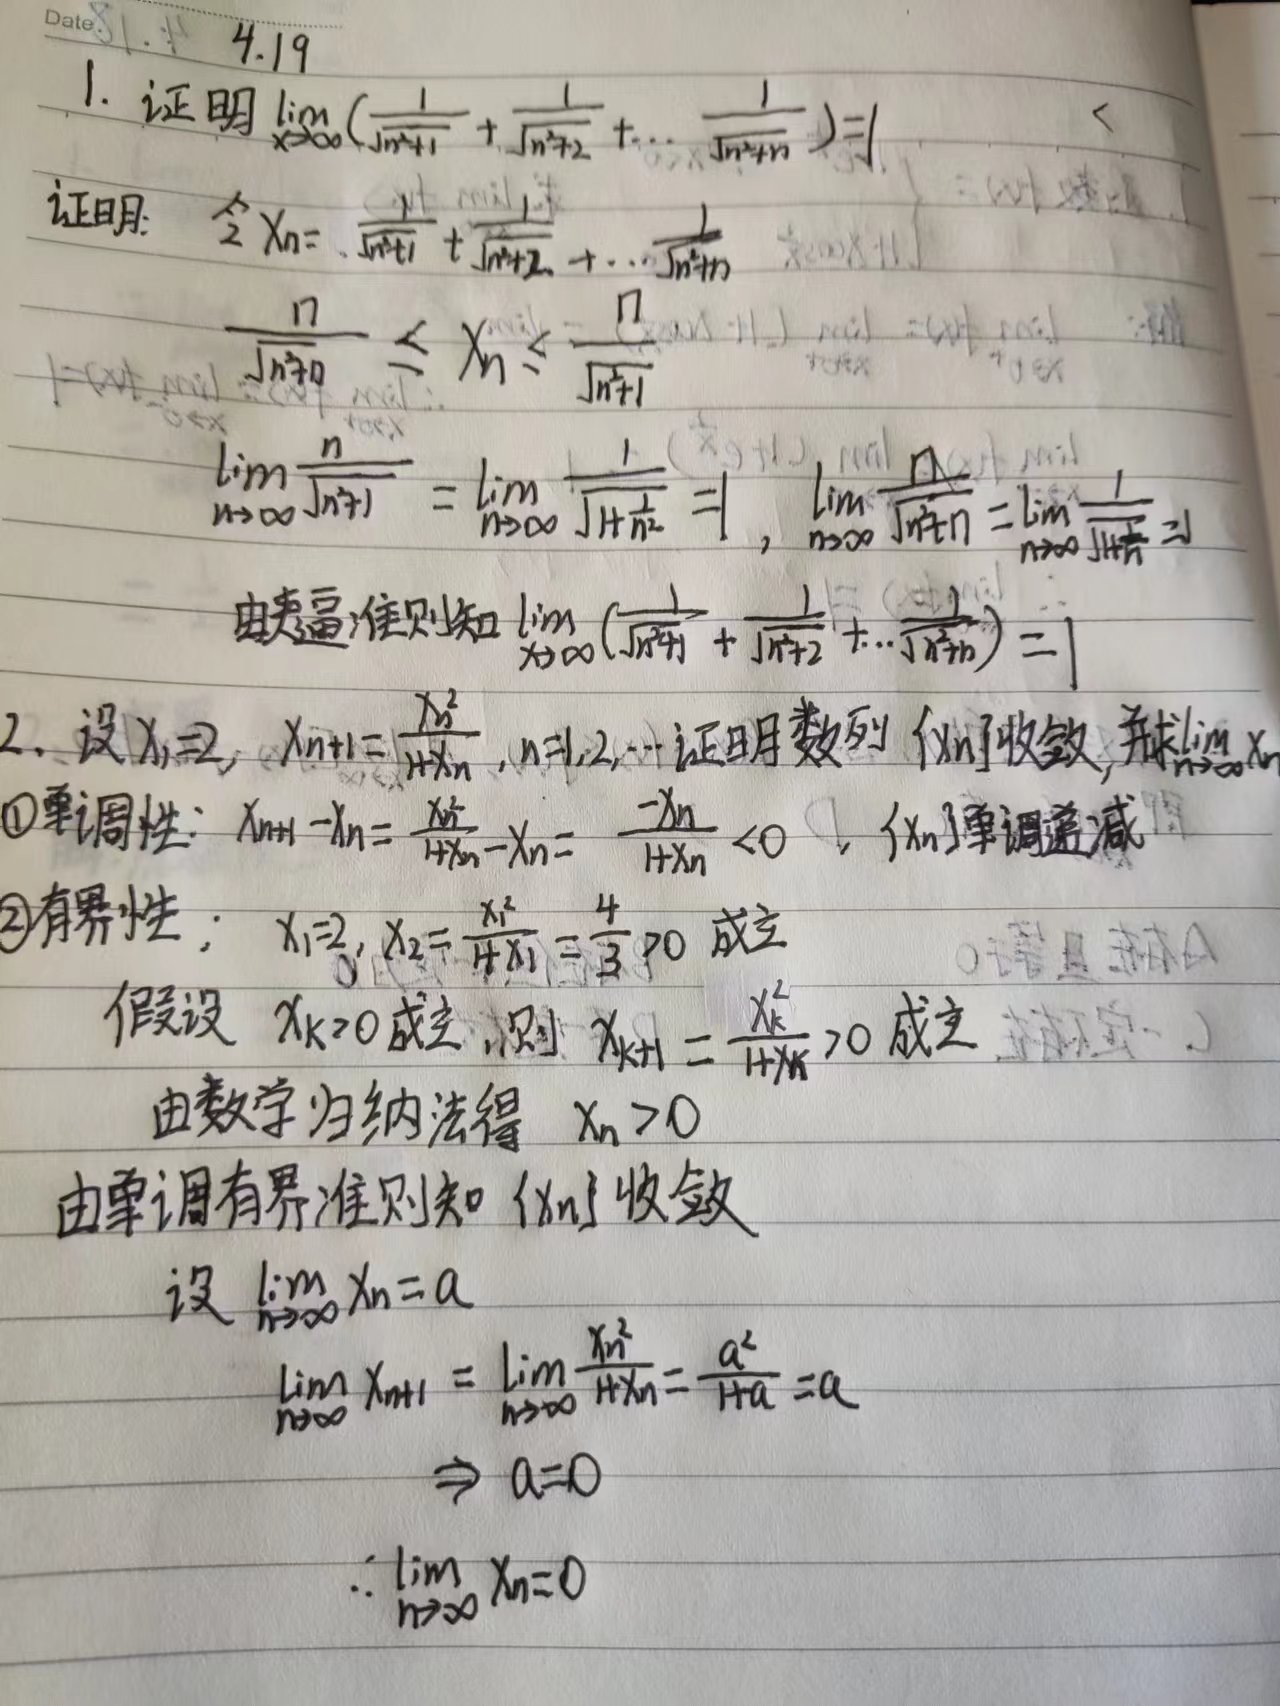 Date:
4.19
1. 证明 lim x→∞ (1/√(n²+1) + 1/√(n²+2) + … 1/√(n²+n)) = 1
证明: 令 Xn = 1/√(n²+1) + 1/√(n²+2) + … 1/√(n²+n)
n/√(n²+n) ≤ Xn ≤ n/√(n²+1)
lim n→∞ n/√(n²+1) = lim n→∞ 1/√(1+1/n²) = 1, lim n→∞ n/√(n²+n) = lim n→∞ 1/√(1+1/n) = 1
由夹逼准则知 lim x→∞ (1/√(n²+1) + 1/√(n²+2) + … 1/√(n²+n)) = 1
2. 设 X₁=2, Xn+1 = Xn²/(1+Xn), n=1,2,… 证明数列 {Xn} 收敛, 并求 lim n→∞ Xn
①单调性: Xn+1 - Xn = Xn²/(1+Xn) - Xn = -Xn/(1+Xn) < 0, {Xn}单调递减
②有界性: X₁=2, X₂ = X₁²/(1+X₁) = 4/3 > 0 成立
假设 Xk>0 成立, 则 Xk+1 = Xk²/(1+Xk) > 0 成立
由数学归纳法得 Xn > 0
由单调有界准则知 {Xn} 收敛
设 lim n→∞ Xn = a
lim n→∞ Xn+1 = lim n→∞ Xn²/(1+Xn) = a²/(1+a) = a
⇒ a=0
∴ lim n→∞ Xn = 0